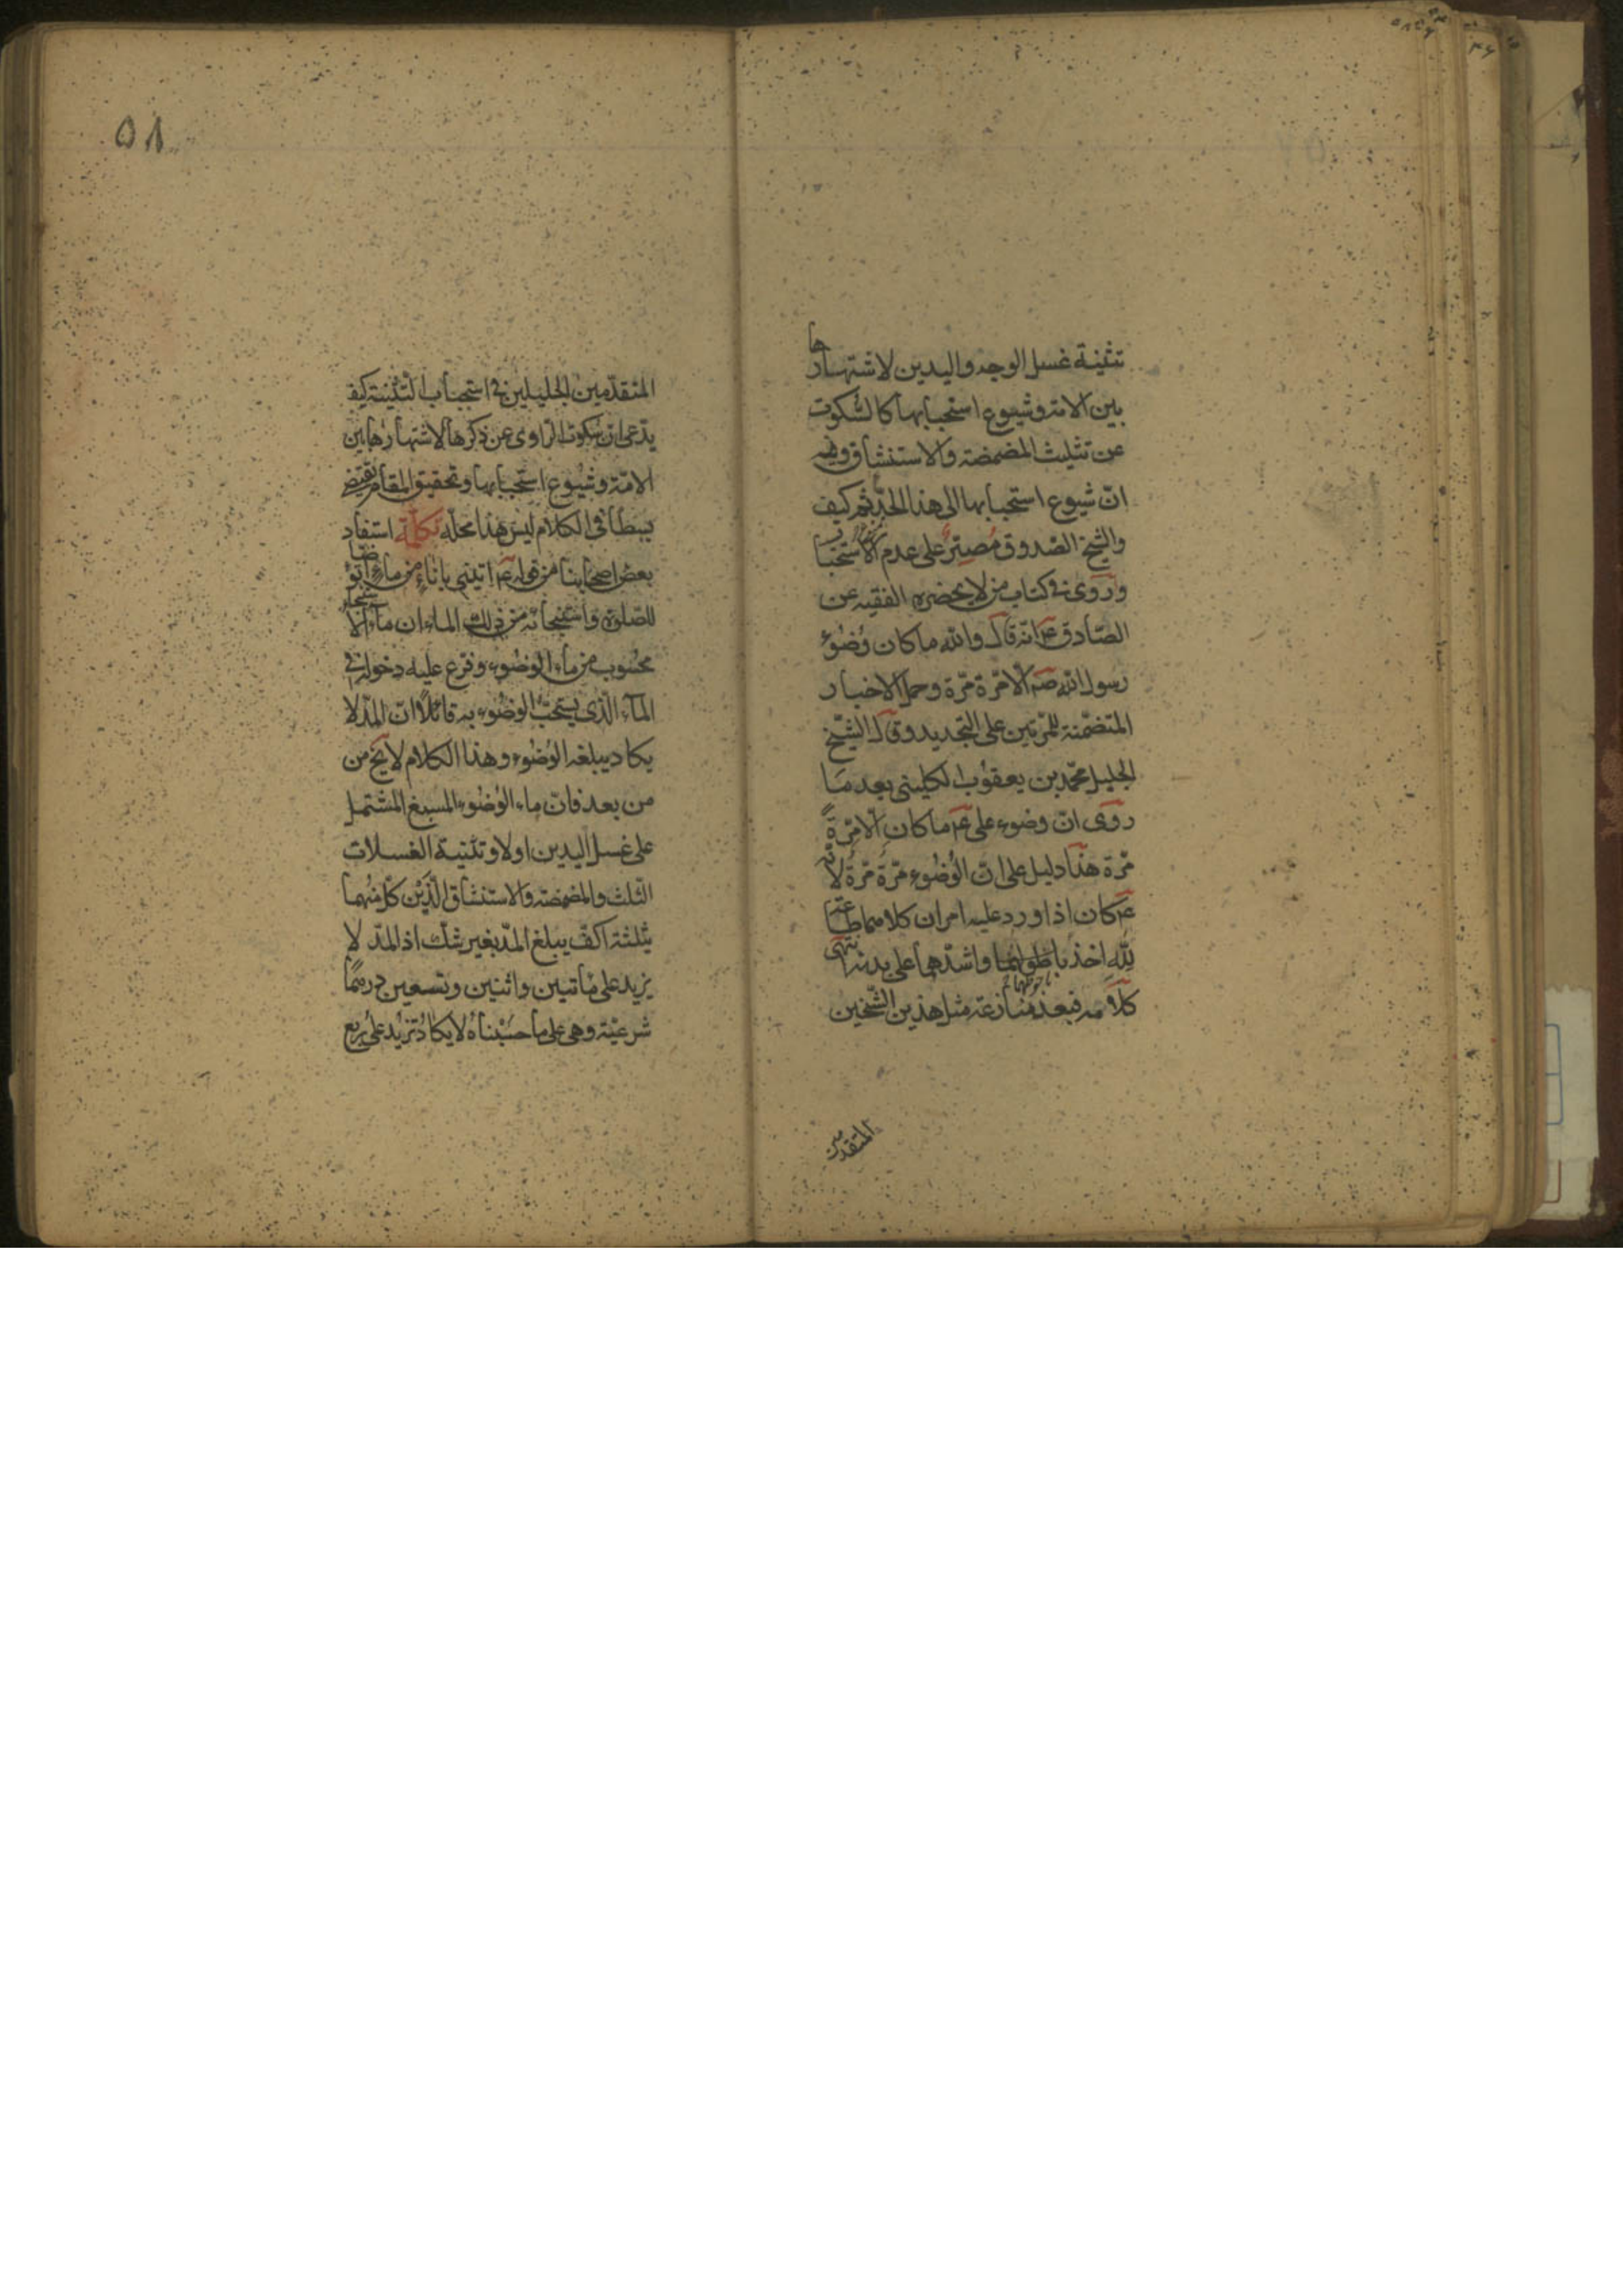 تثنية غسل الوجه واليدين لاشتهارها
بين الامة وشيوع استحبابها كالسكوت
عن تثليث المضمضة والاستنشاق وفيه
انّ شيوع استحبابها الى هذا الحدّ ثم كيف
والشيخ الصّدوق مُصِرّ على عدم الاستحباب
وروى فى كتاب من لا يحضره الفقيه عن
الصّادق عم انّه قال والله ما كان وُضوُء
رسول الله صم الّا مرّة مرّة وحمل الاخبار
المتضمّنة للمرّتين على التجديد وقال الشيخ
الجليل محمّد بن يعقوُب الكلينى بعد مَا
روى انّ وضوء على عم ما كان الّا مرّةً
مرّة هذا دليل على انّ الوُضُوء مرّة مرّة لانّه
عم كان اذا ورد عليه امران كلاهما طاعة
لِلّهِ اخذ باحوطهما واشدّهما على بدنه انتهى
كلامه فبعد منازعة مثل هذين الشّيخين
المتقدمين
٥٨
المتقدّمين الجليلين فى استحباب التّثنية كيف
يدّعى انّ سكوت الرّاوى عن ذكرها لاشتهارها بين
الامّة وشيُوع استحبابها وتحقيق المقام يقتضى
بسطا فى الكلام ليس هذا محلّه تكملة استفاد
بعض اصحابنا من قوله عم اتينى باناء من ماء اتوضّأ
للصّلوة واستنجائه من ذلك الماء ان ماء الاستنجاء
محسُوب من ماء الوضُوء وفرّع عليه دخوله فى
المآء الّذى يستحبّ الوضُوء به قائلًا انّ المدّ لا
يكاد يبلغه الوُضُوء وهذا الكلام لا يخ من
من بعد فانّ ماء الوُضُوء المسبغ المشتمل
على غسل اليدين اولا وتثنية الغسلات
الثّلث والمضمضة والاستنشاق الّذَيْن كلّ منهما
بثلثة اكفّ يبلغ المدّ بغير شكّ اذ المدّ لا
يزيد على مأتين واثنين وتسعين درهمًا
شرعيّة وهى على ما حسَبْناهُ لا يكاد تزيد على رُبع